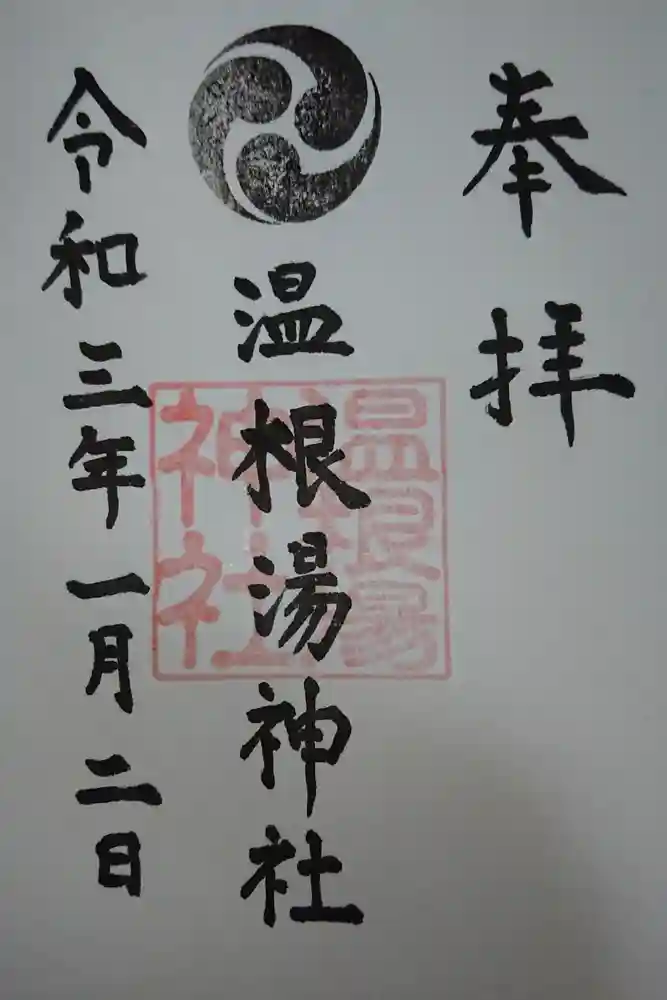 奉拝
温根湯神社
温根湯
神社
令和三年一月二日